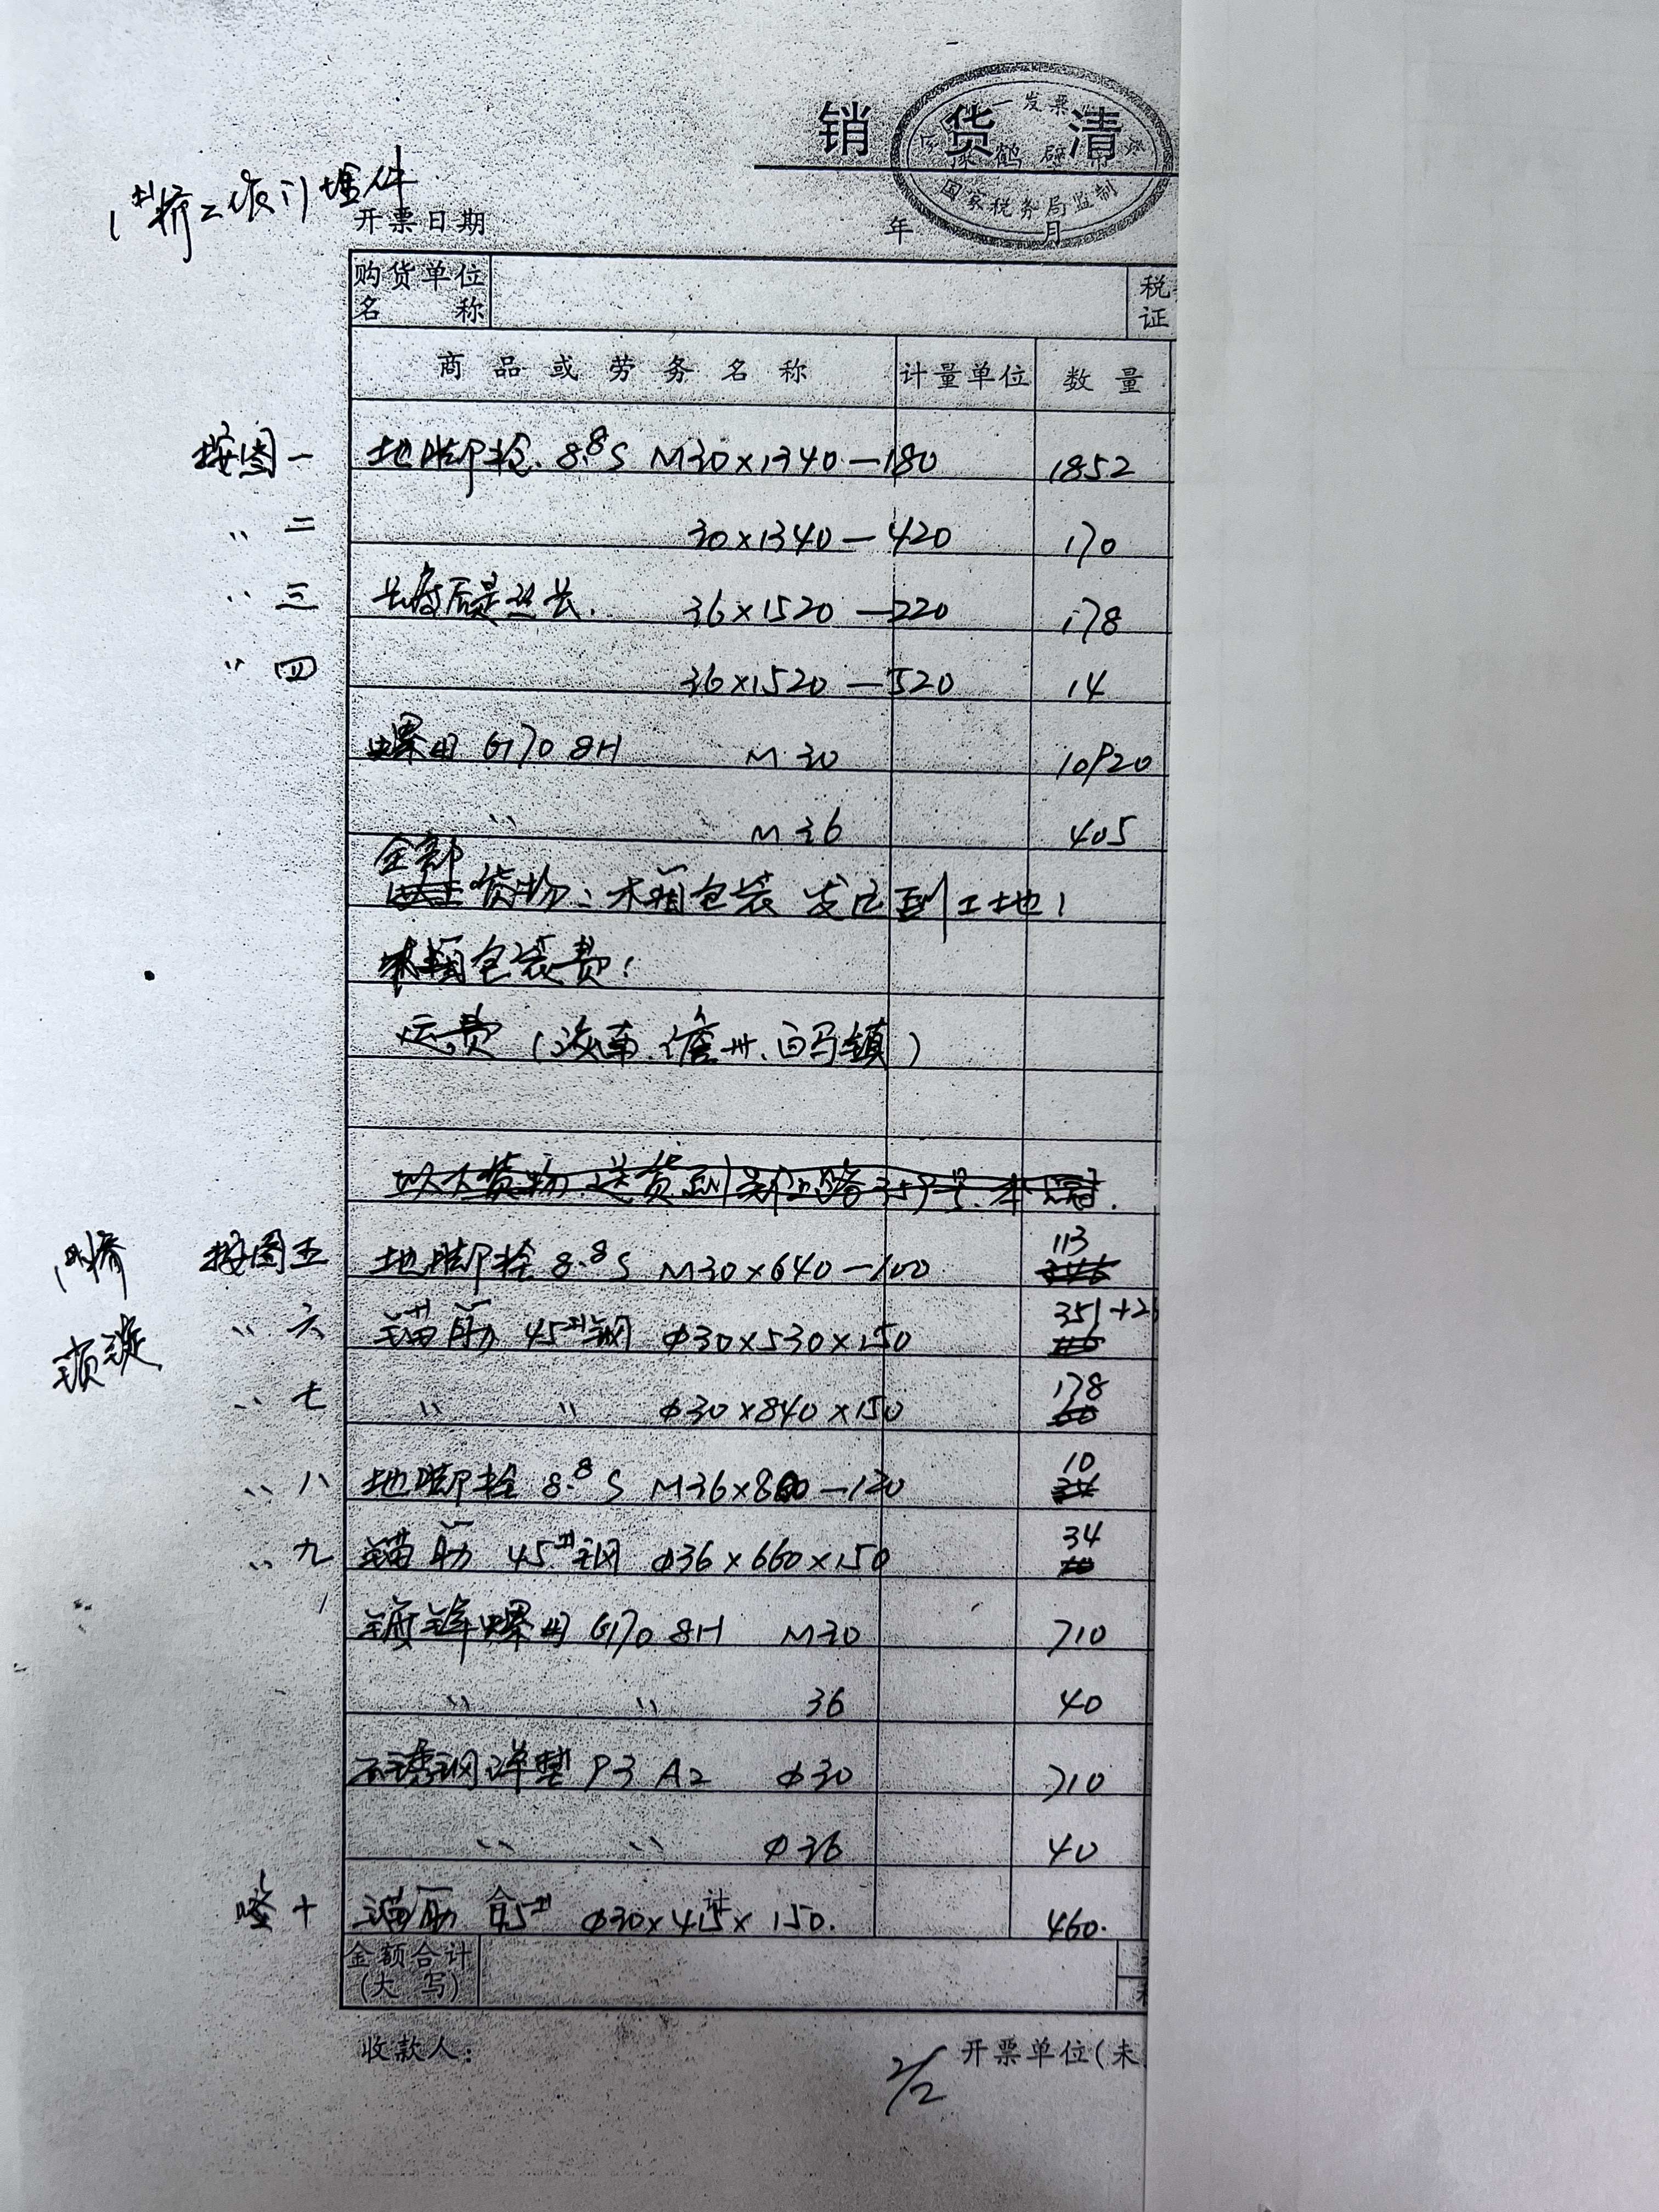 销 货 清
发票
国家税务局监制
1#桥二次预埋件
开票日期 年 月
购货单位名称 税 证
商品或劳务名称 计量单位 数量
按图一 地脚栓 8.8S M30×1340—180 1852
〃 二 30×1340—420 170
〃 三 长度后是丝长. 36×1520—220 178
〃 四 36×1520—520 14
螺母 G170 8H M30 10920
〃 M36 405
全部
货物: 木箱包装 发运到工地!
木箱包装费:
运费 (海南.儋州.白马镇)
以下货物.送货到 路359号.
按图五 地脚栓 8.8S M30×640—100 113
〃 六 锚筋 45#钢 φ30×530×150 351+2
〃 七 〃 〃 φ30×840×150 178
〃 八 地脚栓 8.8S M36×800—120 10
〃 九 锚筋 45#钢 φ36×660×150 34
镀锌螺母 G170 8H M30 710
〃 〃 36 40
不锈钢平垫 P3 A2 φ30 710
〃 〃 φ36 40
十 锚筋 45# φ30× × 150. 460.
金额合计
(大 写)
收款人:
2/2 开票单位(未